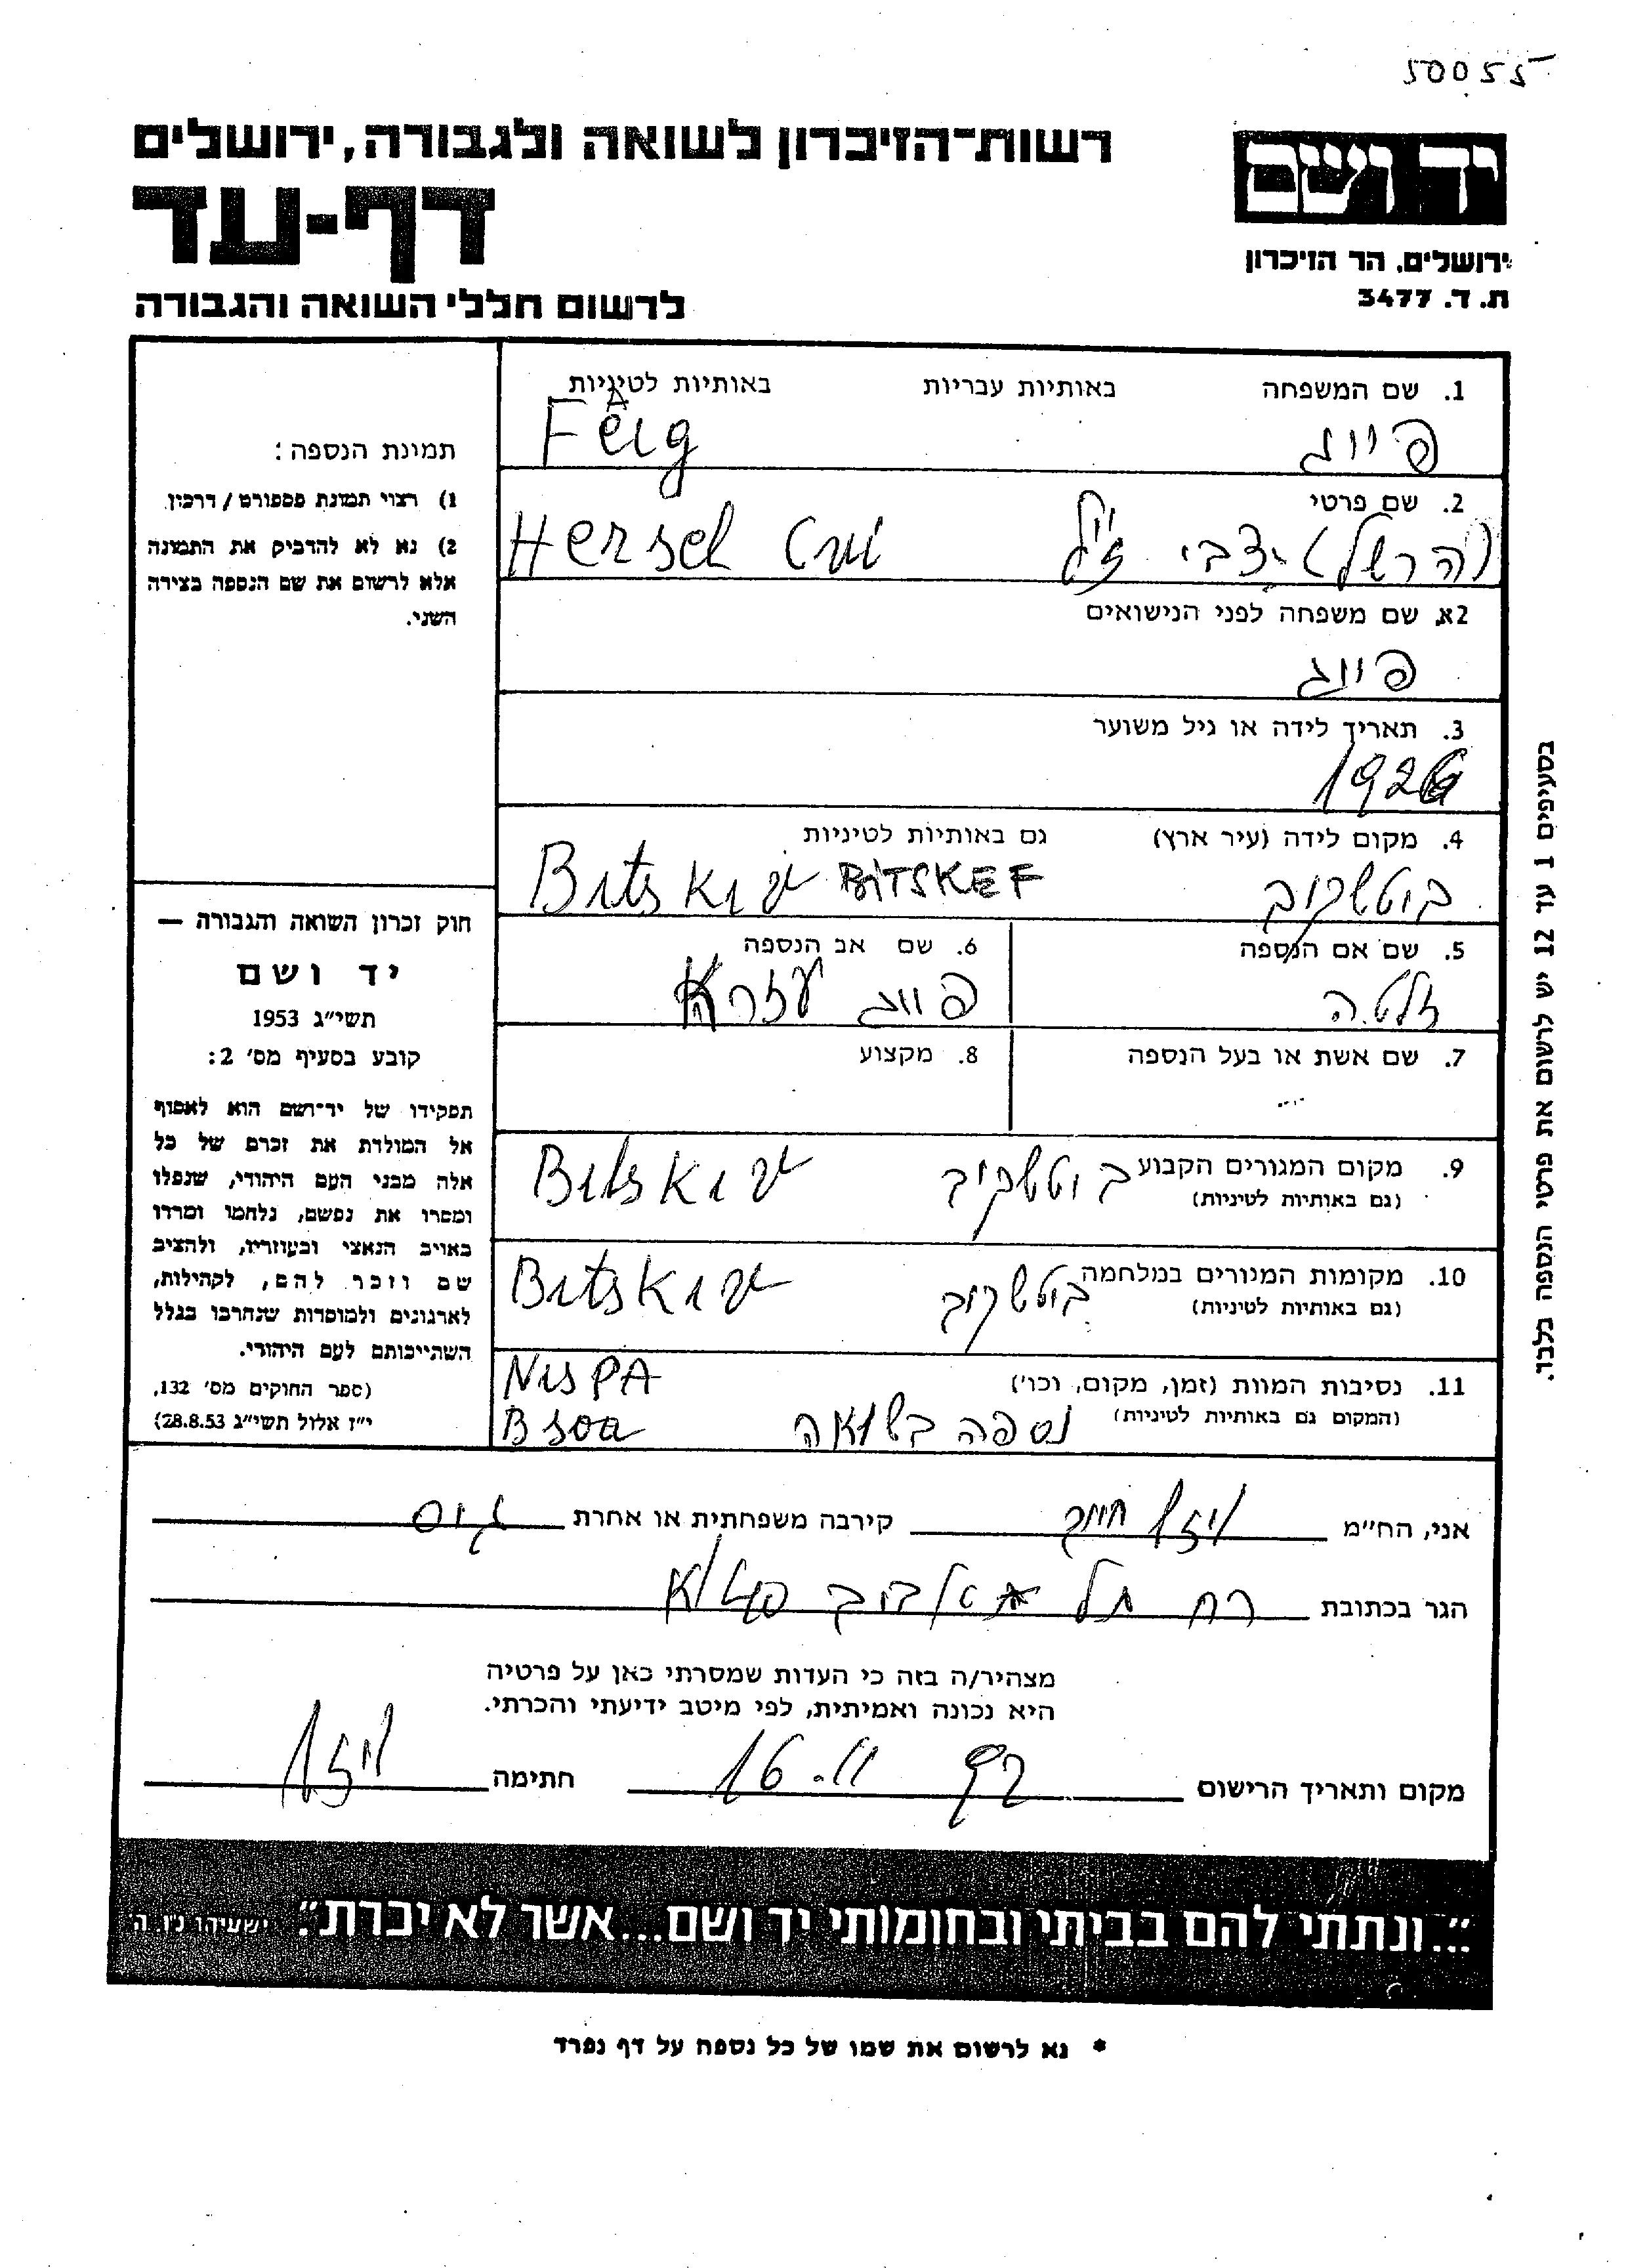 50055
רשות־הזיכרון לשואה ולגבורה, ירושלים
דף-עד
לרשום חללי השואה והגבורה
יד ושם
ירושלים, הר הזיכרון
ת. ד. 3477
1. שם המשפחה באותיות עבריות באותיות לטיניות
פייג Feig
2. שם פרטי
(הרשל) צבי ז"ל Hersch Cvi
2א. שם משפחה לפני הנישואים
פייג
3. תאריך לידה או גיל משוער
1926
4. מקום לידה (עיר ארץ) גם באותיות לטיניות
ביטשקיב Bitskiv BiTSKEF
5. שם אם הנספה
זלטה
6. שם אב הנספה
פייג עזרא
7. שם אשת או בעל הנספה
8. מקצוע
9. מקום המגורים הקבוע ביטשקיב Bitskiv
(גם באותיות לטיניות)
10. מקומות המגורים במלחמה ביטשקיב Bitskiv
(גם באותיות לטיניות)
11. נסיבות המוות (זמן, מקום, וכו') NisPA
(המקום גם באותיות לטיניות) נספה בשואה Bsoa
תמונת הנספה:
1) רצוי תמונת פספורט/דרכון
2) נא לא להדביק את התמונה
אלא לרשום את שם הנספה בצידה
השני.
חוק זכרון השואה והגבורה —
יד ושם
תשי"ג 1953
קובע בסעיף מס' 2:
תפקידו של יד־ושם הוא לאסוף
אל המולדת את זכרם של כל
אלה מבני העם היהודי, שנפלו
ומסרו את נפשם, נלחמו ומרדו
באויב הנאצי ובעוזריו, ולהציב
שם וזכר להם, לקהילות,
לארגונים ולמוסדות שנחרבו בגלל
השתייכותם לעם היהודי.
(ספר החוקים מס' 132,
י"ז אלול תשי"ג 28.8.53)
בסעיפים 1 עד 12 יש לרשום את פרטי הנספה בלבד.
אני, הח"מ קירבה משפחתית או אחרת גיס
הגר בכתובת רח תל אביב
מצהיר/ה בזה כי העדות שמסרתי כאן על פרטיה
היא נכונה ואמיתית, לפי מיטב ידיעתי והכרתי.
מקום ותאריך הרישום 16.11 חתימה
"...ונתתי להם בביתי ובחומותי יד ושם...אשר לא יכרת." ישעיהו נ"ו, ה'
* נא לרשום את שמו של כל נספה על דף נפרד